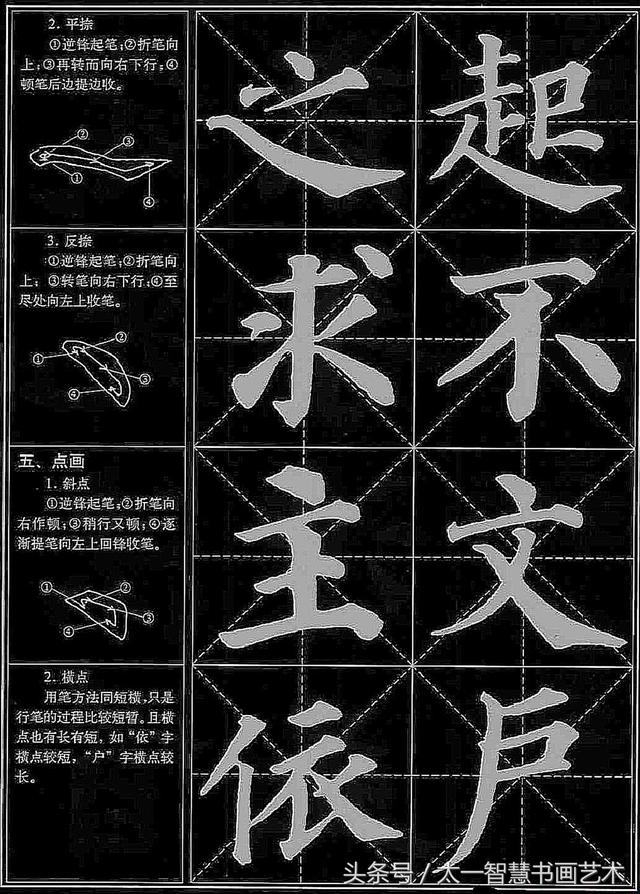 2. 平捺
①逆锋起笔;②折笔向
上;③再转而向右下行;④
顿笔后边提边收。
② ③
①
④
之 起
3. 反捺
①逆锋起笔;②折笔向
上; ③转笔向右下行;④至
尽处向左上收笔。
① ②
③
④
求 不
五、点画
1. 斜点
①逆锋起笔;②折笔向
右作顿;③稍行又顿;④逐
渐提笔向左上回锋收笔。
① ②
③
④
主 文
2. 横点
用笔方法同短横,只是
行笔的过程比较短暂。且横
点也有长有短, 如“依”字
横点较短,“户”字横点较
长。
依 户
头条号/太一智慧书画艺术